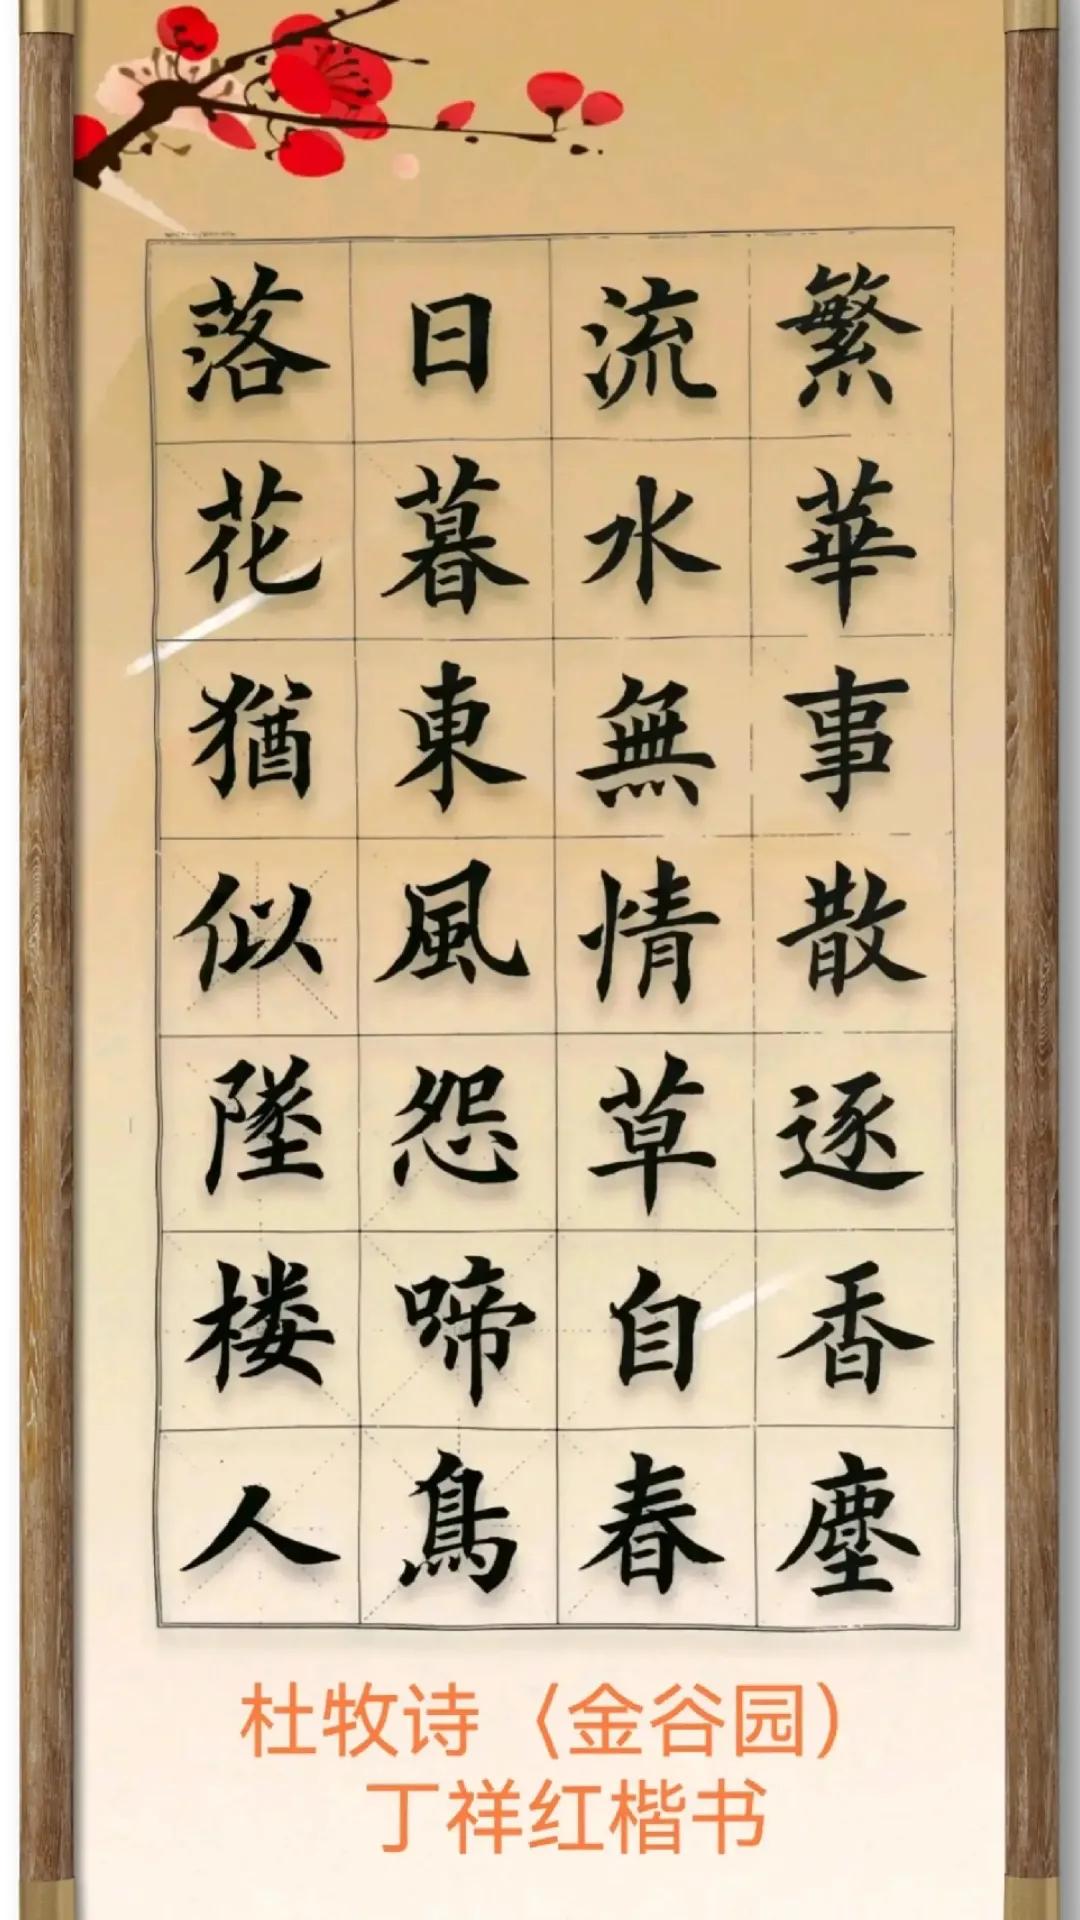 繁華事散逐香塵
流水無情草自春
日暮東風怨啼鳥
落花猶似墜楼人
杜牧诗（金谷园）
丁祥红楷书